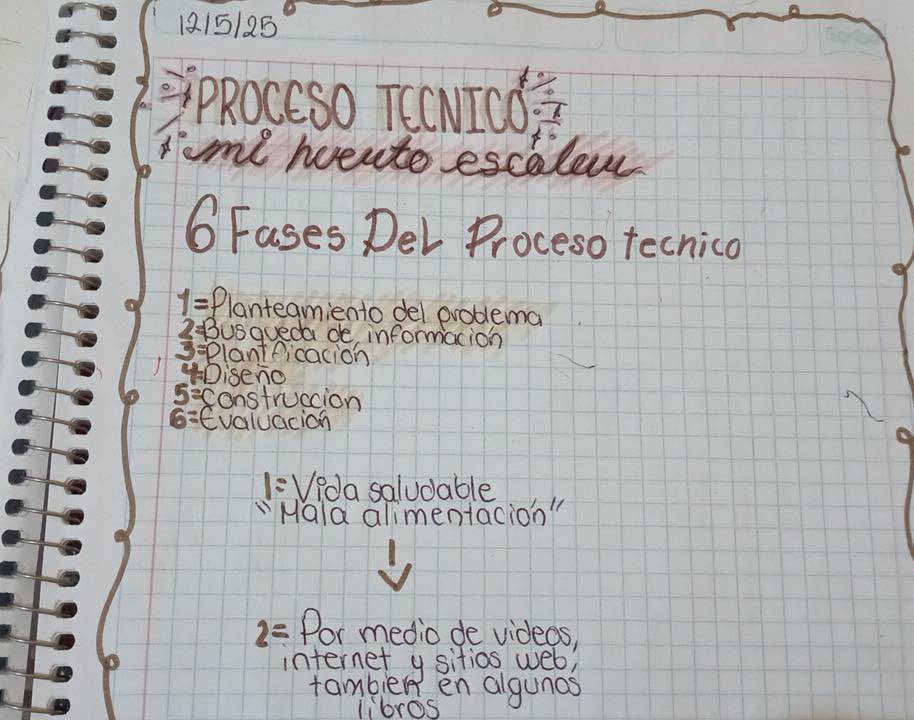 12/5/25
Scribe
PROCESO TECNICO
mi huerto escolar
6 Fases Del Proceso tecnico
1=Planteamiento del problema
2=Busqueda de información
3=Planificación
4=Diseño
5=construccion
6=Evaluación
1=Vida saludable
"Mala alimentación"
2= Por medio de videos,
internet y sitios web,
tambien en algunos
libros